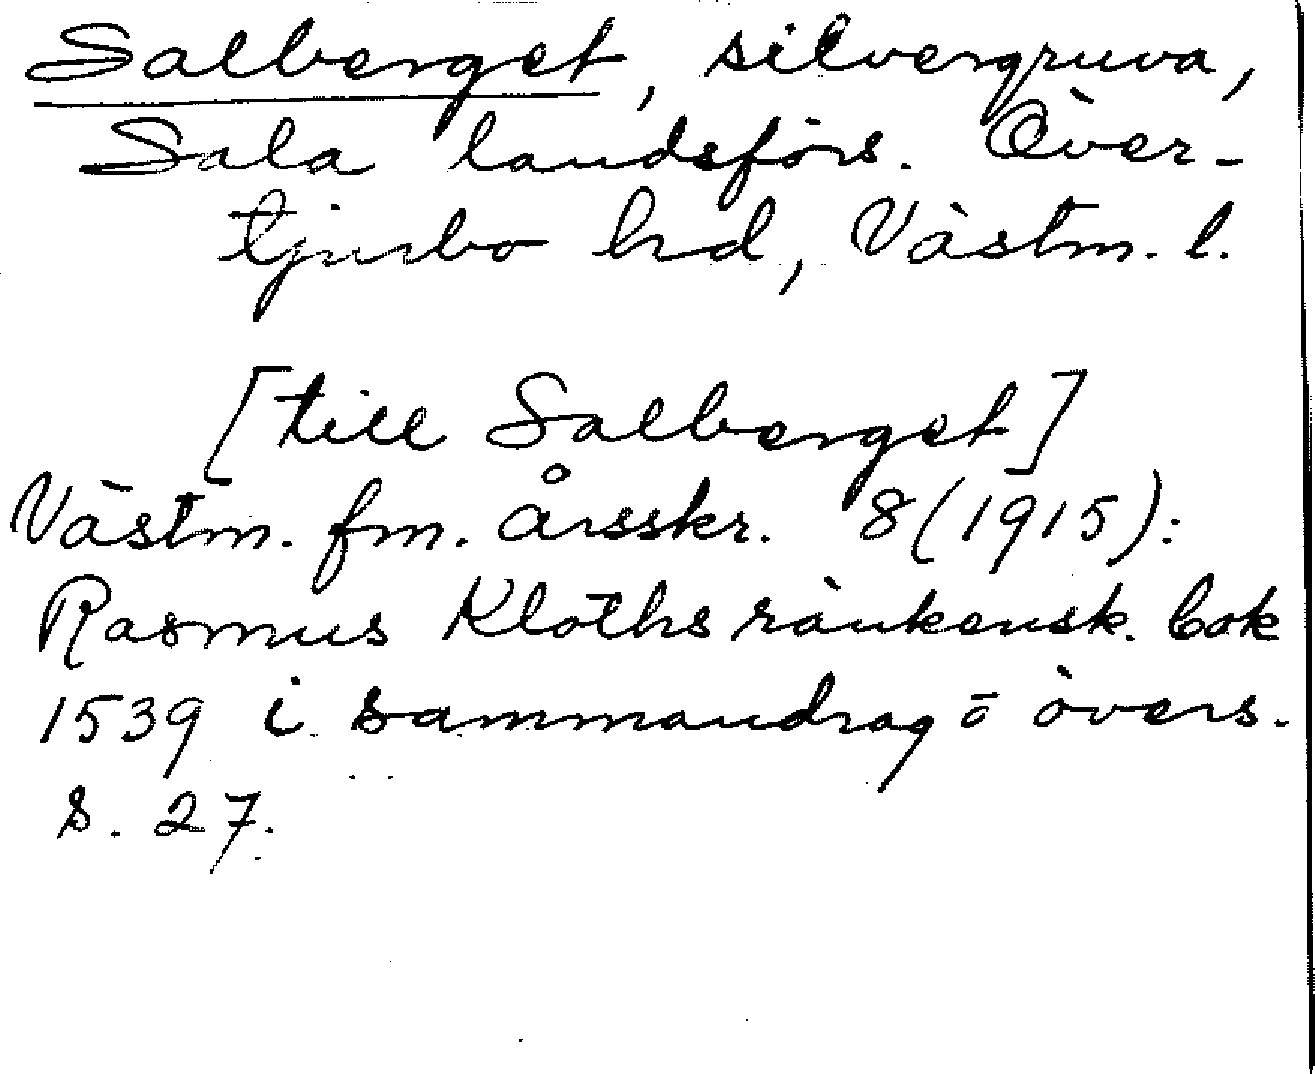 Salberget, silvergruva,
Sala landsförs. Över-
tjurbo hd, Västm. l.
[till Salberget]
Västm. fm. årsskr. 8 (1915):
Rasmus Kloths räkensk. bok
1539 i sammandrag o övers.
s. 27.